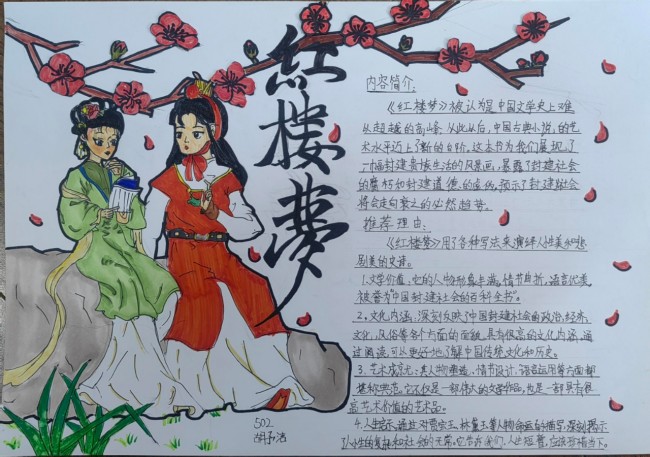 红楼梦
内容简介:
《红楼梦》被认为是中国文学史上难
以超越的高峰,从此以后,中国古典小说,的艺
术水平迈上了新的台阶。这本书为我们展现了
一幅封建贵族生活的风景画,暴露了封建社会
的腐朽和封建道德的虚伪,预示了封建社会
将会走向衰亡的必然趋势。
推荐理由:
《红楼梦》用了各种写法来演绎人性美和悲
剧美的史诗。
1.文学价值:它的人物形象丰满,情节曲折,语言优美,
被誉为"中国封建社会的百科全书"。
2.文化内涵:深刻反映了中国封建社会的政治,经济,
文化,风俗等各个方面的面貌,具有很高的文化内涵,通
过阅读,可以更好地了解中国传统文化和历史。
3.艺术成就:其人物塑造、情节设计、语言运用等方面都
堪称典范。它不仅是一部伟大的文学作品,也是一部具有很
高艺术价值的艺术品。
4.人生启示:通过对贾宝玉、林黛玉等人物命运的描写,深刻揭示
了人性的复杂和社会的无常。它告诉我们,人生短暂,应该珍惜当下。
502
胡